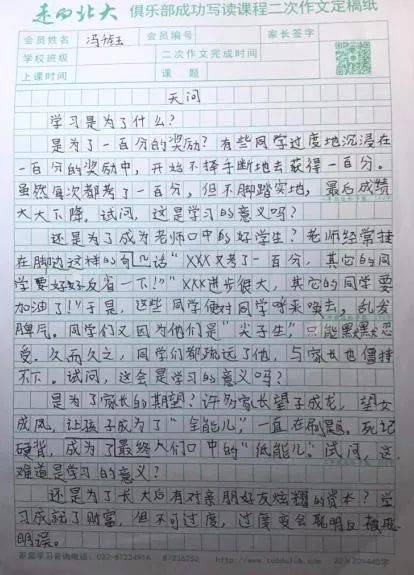 走向北大 俱乐部成功写读课程二次作文定稿纸
会员姓名 冯 会员编号 家长签字
学校班级 二次作文完成时间
上课时间 课题
天问
学习是为了什么?
是为了一百分的奖励?有些同学过度地沉浸在
一百分的奖励中,开始不择手断地去获得一百分。
虽然每次都考了一百分,但不脚踏实地,最后成绩
大大下降。试问,这是学习的意义吗?
还是为了成为老师口中的好学生?老师经常挂
在脚边这样的句几话“XXX又考了一百分,其它的同
学要好好反省一下!”“XXX进步很大,其它的同学要
加油了!”于是,这些同学便对同学呼来唤去,乱发
脾气。同学们又因为他们是“尖子生”,只能默默忍
受。久而久之,同学们都疏远了他,与家长也僵持
不下。试问,这会是学习的意义吗?
是为了家长的期望?许多家长望子成龙,望女
成凤,让孩子成为了“全能儿”,一直在刷题。死记
硬背,成为了最终人们口中的“低能儿”。试问,这
难道是学习的意义?
还是为了长大后有对亲朋好友炫耀的资本?学
习成就了财富,但不可过度,过度要会聪明反被聪
明误。
家庭学习咨询电话:022-87234916 87216252 http://www.tobdclub.com 22×20=440字